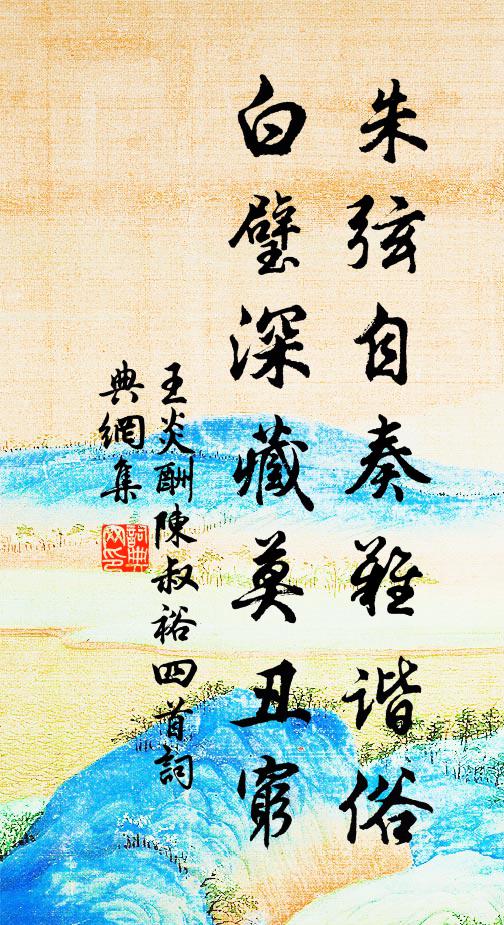 朱弦自奏難谐俗
白璧深藏莫丑窮
王炎酬陳叔裕四首詞
典網集